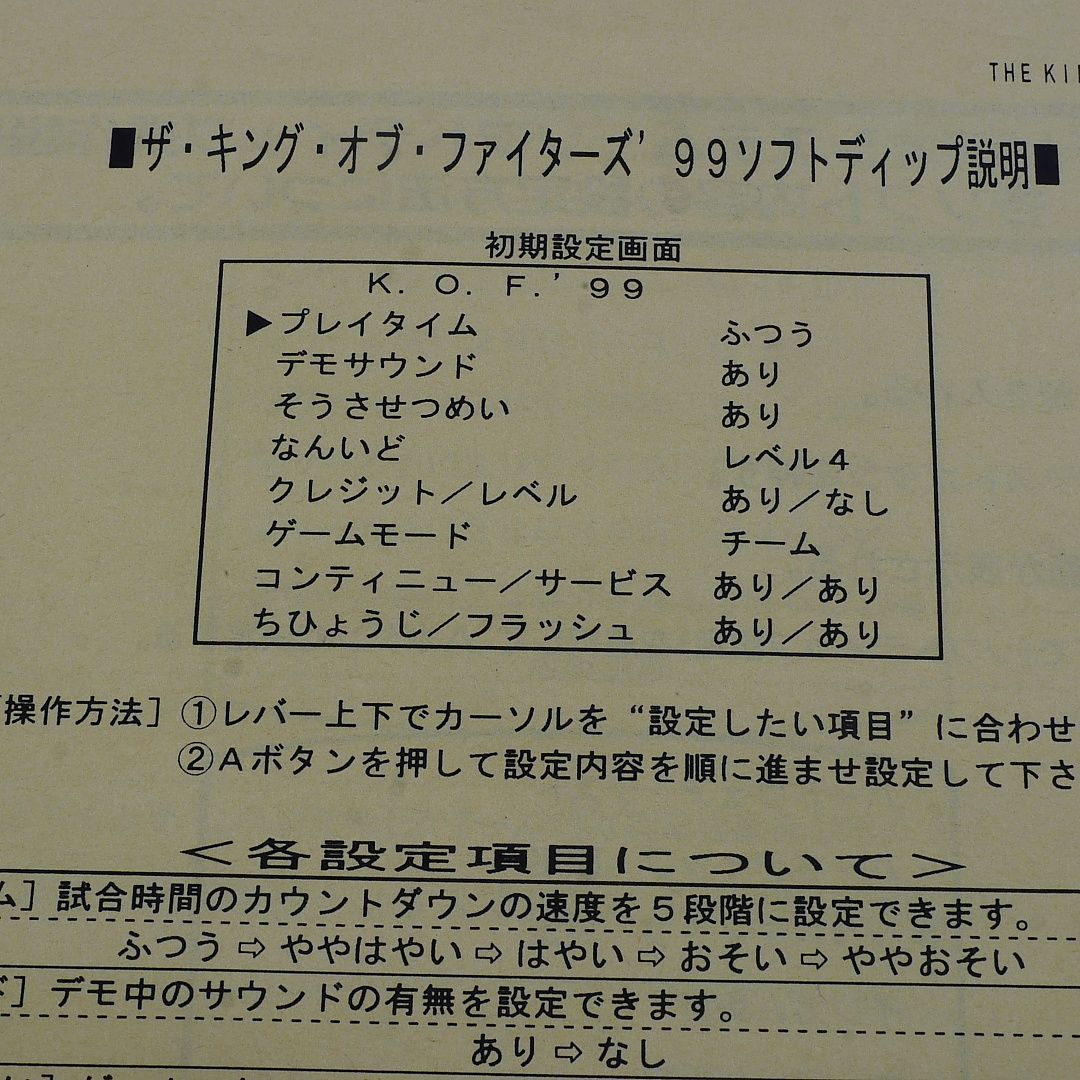 THE KI
■ザ・キング・オブ・ファイターズ’99ソフトディップ説明■
初期設定画面
K.O.F.’99
▶プレイタイム ふつう
デモサウンド あり
そうさせつめい あり
なんいど レベル4
クレジット/レベル あり/なし
ゲームモード チーム
コンティニュー/サービス あり/あり
ちひょうじ/フラッシュ あり/あり
操作方法] ①レバー上下でカーソルを“設定したい項目”に合わせ
②Aボタンを押して設定内容を順に進ませ設定して下さ
<各設定項目について>
ム] 試合時間のカウントダウンの速度を5段階に設定できます。
ふつう⇨ややはやい⇨はやい⇨おそい⇨ややおそい
ド] デモ中のサウンドの有無を設定できます。
あり⇨なし